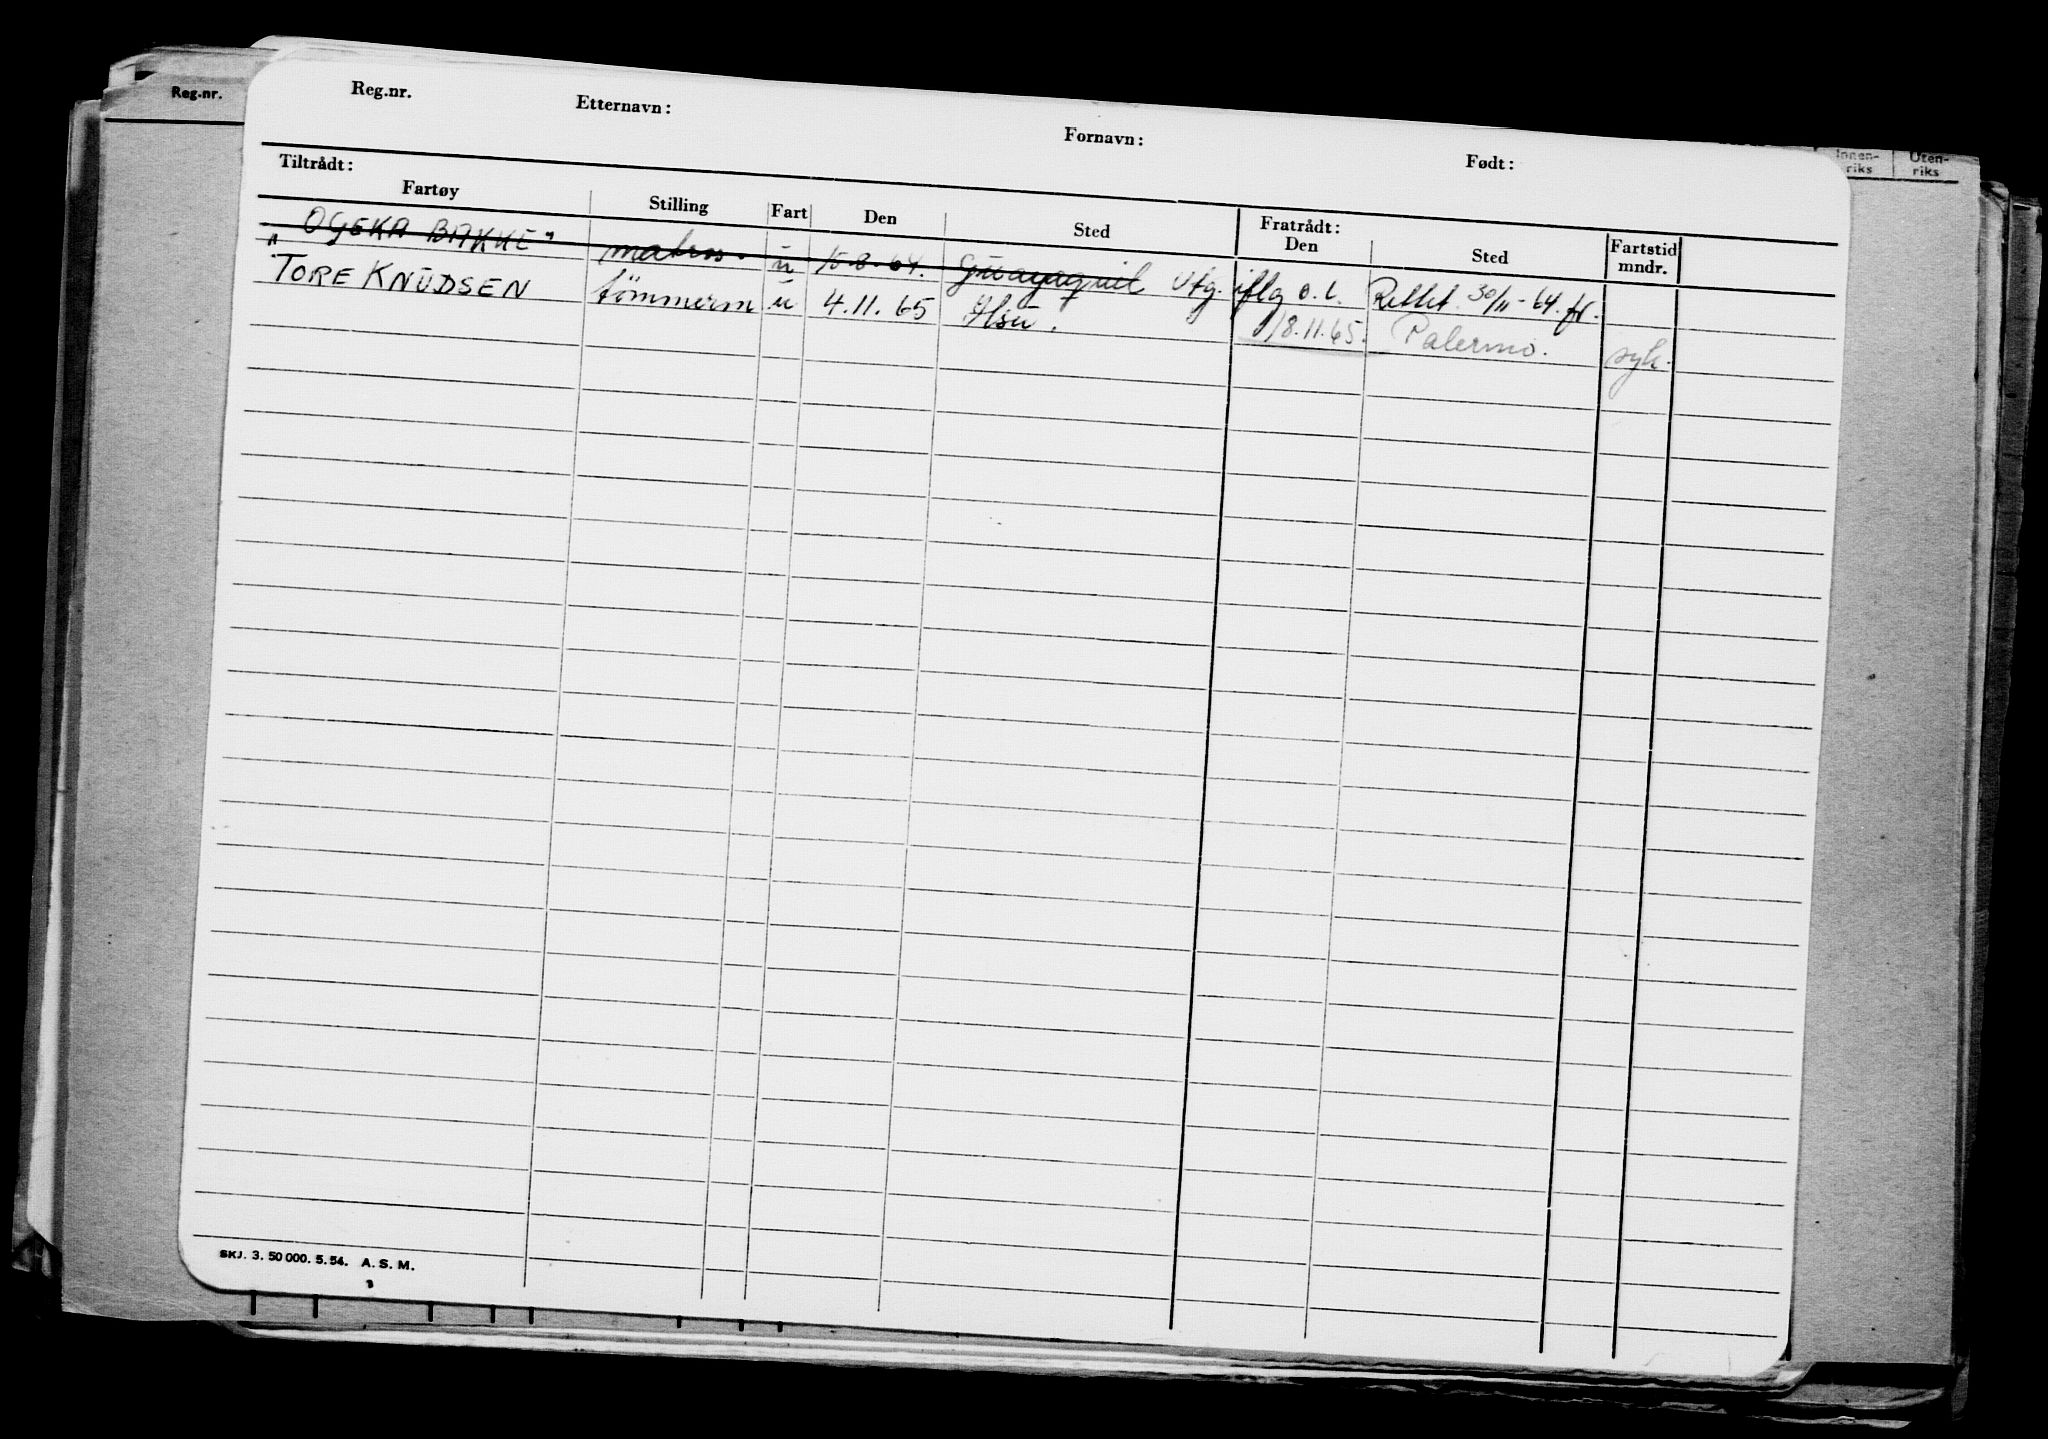 Reg.nr.
Reg.nr. Etternavn: Fornavn: Født:
Innen-riks Uten-riks
Tiltrådt: Fratrådt:
Fartøy Stilling Fart Den Sted Den Sted Fartstid mndr.
"OGEKA BAKKE" matros. u 15.8.64. Guayaquil Utg. iflg o.l. Rettet 30/11-64. fr.
TORE KNUDSEN tömmerm u 4.11.65 18.11.65. Palermo. syk.
SKJ. 3. 50 000. 5. 54. A. S. M.